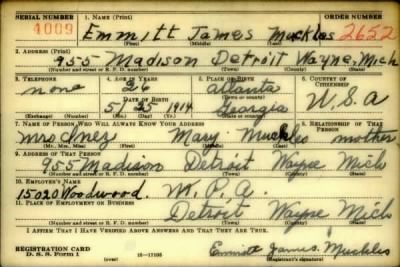 SERIAL NUMBER 1. NAME (Print) ORDER NUMBER
4009 Emmitt James Muckles 2652
(First) (Middle) (Last)
2. ADDRESS (Print)
955 Madison Detroit Wayne, Mich
(Number and street or R. F. D. number) (Town) (County) (State)
3. TELEPHONE 4. AGE IN YEARS 5. PLACE OF BIRTH 6. COUNTRY OF CITIZENSHIP
none 26 Atlanta
DATE OF BIRTH (Town or county)
5/25 1914 Georgia U.S.A
(Exchange) (Number) (Mo.) (Day) (Yr.) (State or country)
7. NAME OF PERSON WHO WILL ALWAYS KNOW YOUR ADDRESS 8. RELATIONSHIP OF THAT PERSON
Mrs Inez Mary Muckles mother
(Mr., Mrs., Miss) (First) (Middle) (Last)
9. ADDRESS OF THAT PERSON
955 Madison Detroit Wayne Mich
(Number and street or R. F. D. number) (Town) (County) (State)
10. EMPLOYER'S NAME
15020 Woodwood. W.P.A.
11. PLACE OF EMPLOYMENT OR BUSINESS
Detroit Wayne Mich
(Number and street or R. F. D. number) (Town) (County) (State)
I AFFIRM THAT I HAVE VERIFIED ABOVE ANSWERS AND THAT THEY ARE TRUE.
REGISTRATION CARD
D. S. S. Form 1 (over) Emmitt James Muckles
(Registrant's signature)